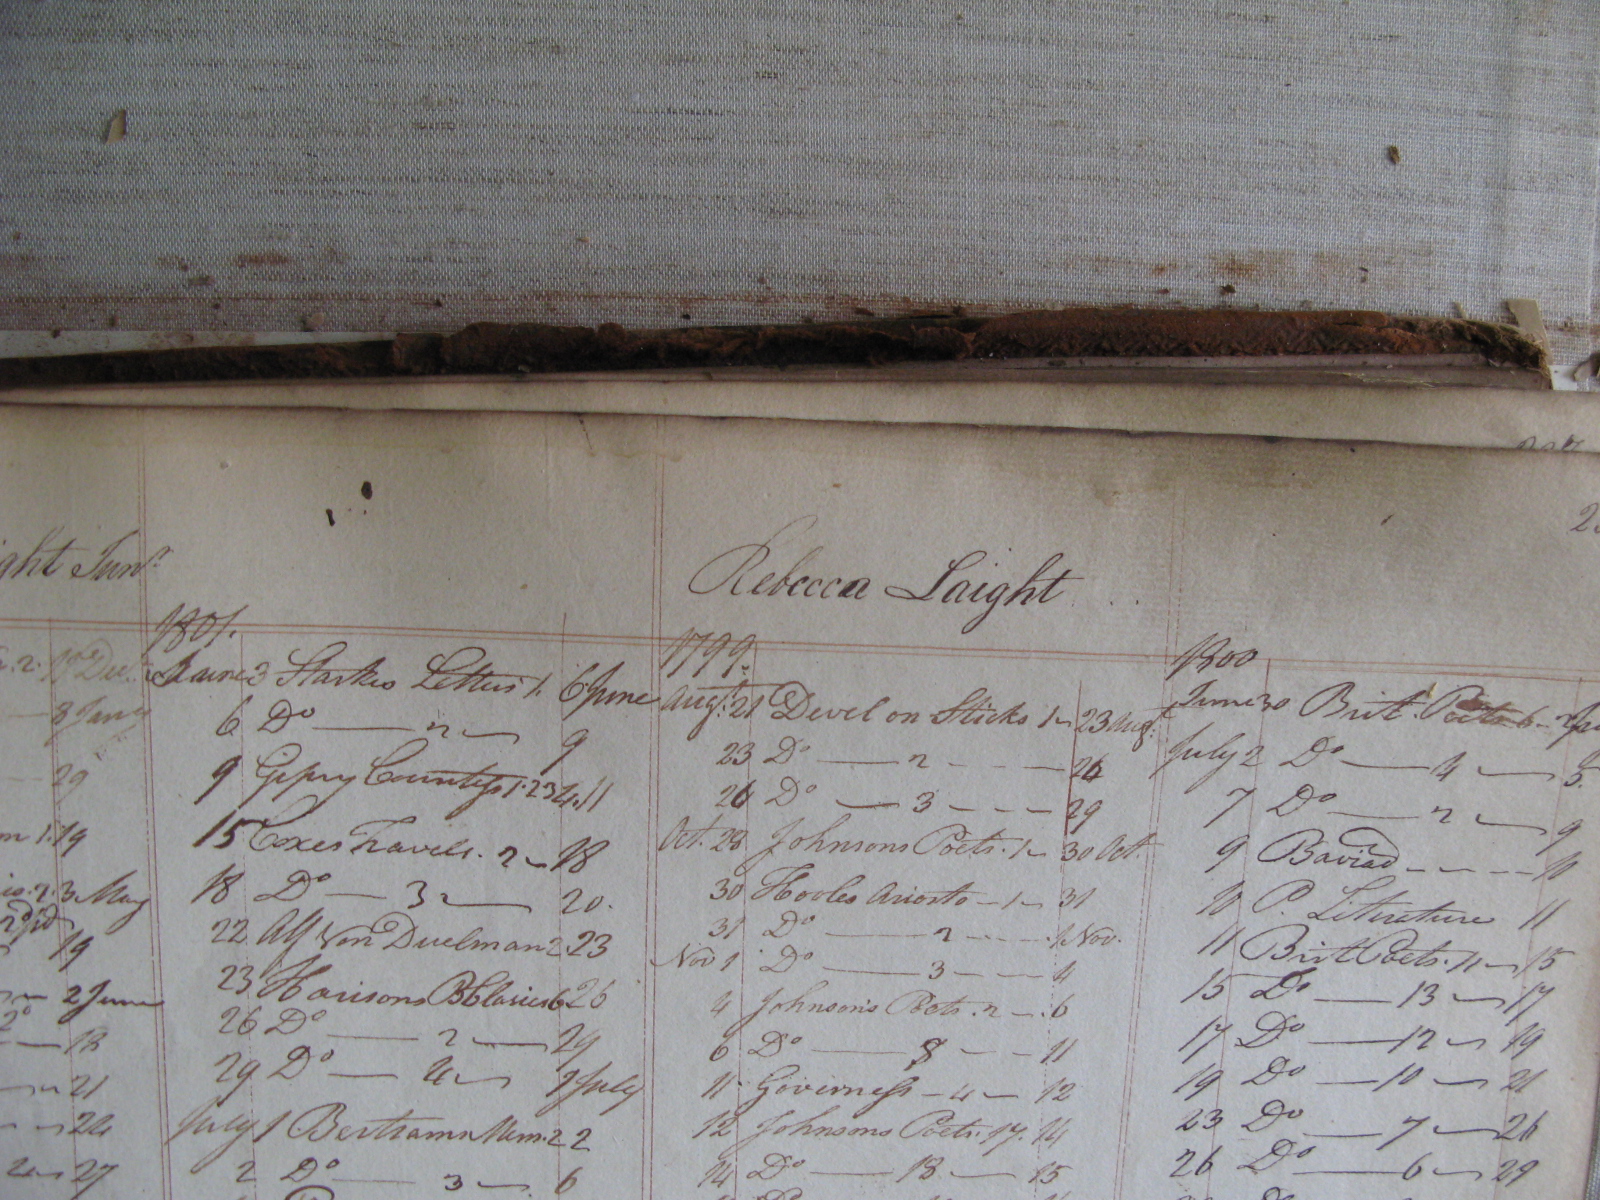 ght Junr.
2. 19 Dec.
8 Jany
29
1. 19
2. 3 May
19
2 June
2o
18
21
24
27
1801.
June 3 Starkes Letters 1. 6 June
6 Do — 2 — 9
9 Gipsy Countess 1.2 3 4. 11
15 Coxes Travels. 2 — 18
18 Do — 3 — 20.
22 Alf Von Duelman 2 23
23 Harisons B Classics 6 26
26 Do — 2 — 29
29 Do — 4 — 1 July
July 1 Bertrams Mem. 2 2
2 Do — 3 — 6
Rebecca Laight
1799.
Augt. 21 Devel on Sticks 1 — 23 Augt.
23 Do — 2 - - - - 26
26 Do — 3 - - - 29
Oct. 28 Johnsons Poets. 1 — 30 Oct.
30 Hooles Ariosto — 1 — 31
31 Do — 2 - - - - 1 Nov.
Nov 1 Do — 3 - - - 4
4 Johnsons Poets. 2 — . 6
6 Do — 8 - - - 11
11 Governess — 4 — 12
12 Johnsons Poets. 17. 14
14 Do — 18 — 15
1800
June 30 Brit. Poets 6 -
July 2 Do — 4 — 5.
7 Do — 2 — 9
9 Baviad - - - - 10
10 P. Literature 11
11 Brit Poets. 11 — 15
15 Do — 13 — 17
17 Do — 12 — 19
19 Do — 10 — 21
23 Do — 7 — 26
26 Do — 6 — 29